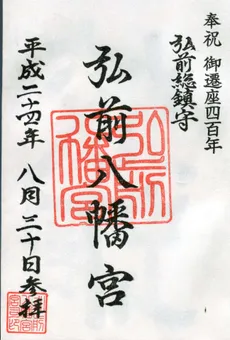 奉祝 御遷座四百年
弘前総鎮守
弘前八幡宮
平成二十四年 八月三十日参拝
弘前八幡宮